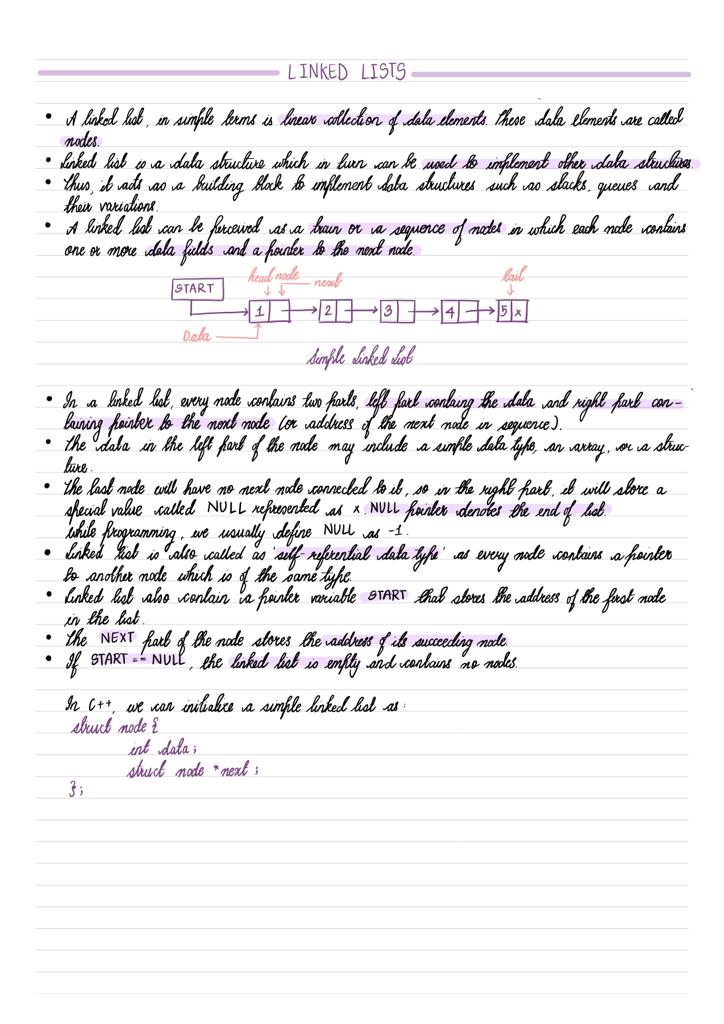 LINKED LISTS
• A linked list, in simple terms is linear collection of data elements. These data elements are called
nodes.
• Linked list is a data structure which in turn can be used to implement other data structures.
• Thus, it acts as a building block to implement data structures such as stacks, queues and
their variations.
• A linked list can be perceived as a train or a sequence of nodes in which each node contains
one or more data fields and a pointer to the next node.
head node
tail
START
next
1 2 3 4 5 x
Data
Simple Linked List
• In a linked list, every node contains two parts, left part containg the data and right part con-
taining pointer to the next node (or address of the next node in sequence).
• The data in the left part of the node may include a simple data type, an array, or a struc-
ture.
• The last node will have no next node connected to it, so in the right part, it will store a
special value called NULL represented as x. NULL pointer denotes the end of list.
While programming, we usually define NULL as -1.
• Linked list is also called as 'self-referential data type' as every node contains a pointer
to another node which is of the same type.
• Linked list also contain a pointer variable START that stores the address of the first node
in the list.
• The NEXT part of the node stores the address of its succeeding node.
• If START == NULL, the linked list is empty and contains no nodes.
In C++, we can initialize a simple linked list as:
struct node {
int data;
struct node *next;
};